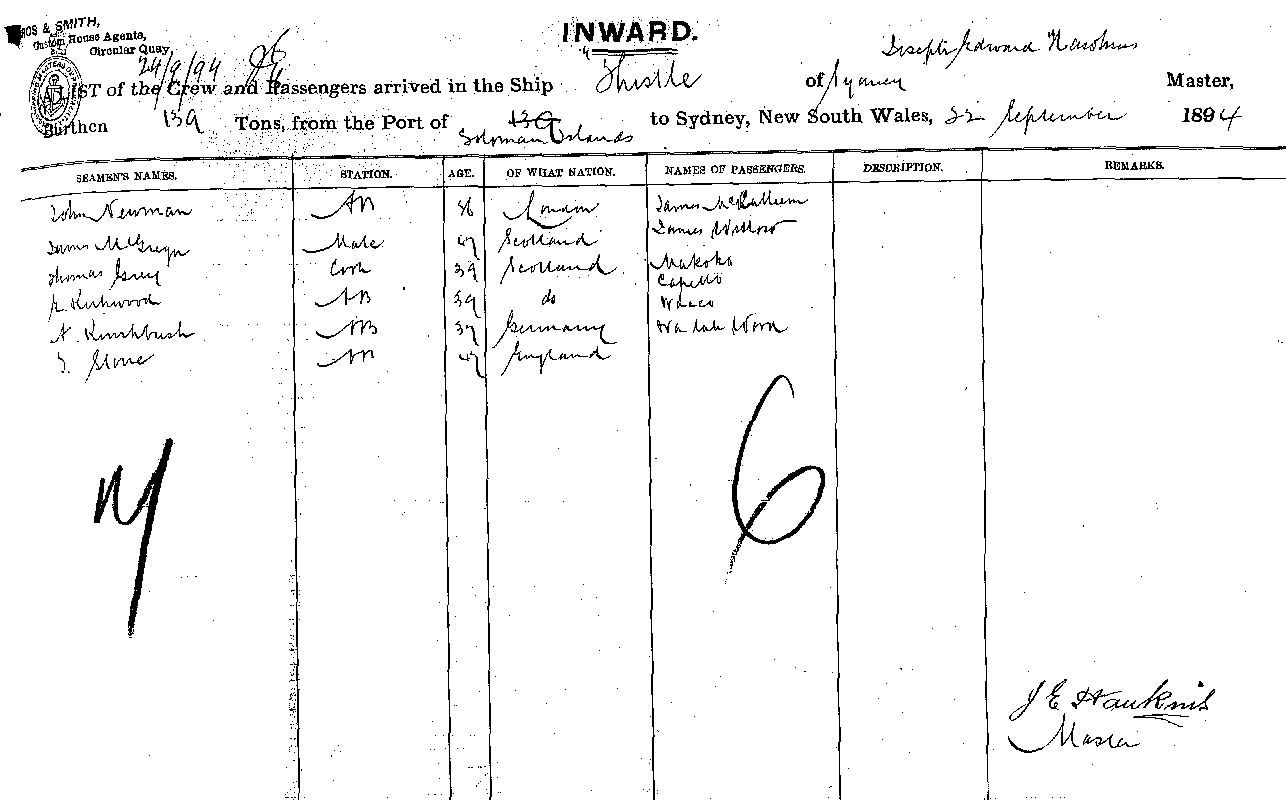 & SMITH,
Custom House Agents,
Circular Quay,
INWARD.
24/9/94
Joseph Edward Hawkins
A LIST of the Crew and Passengers arrived in the Ship "Thistle of Sydney Master,
Burthen 139 Tons, from the Port of Soloman Islands to Sydney, New South Wales, 22 September 1894
SEAMEN'S NAMES. STATION. AGE. OF WHAT NATION. NAMES OF PASSENGERS. DESCRIPTION. REMARKS.
John Newman AB London James McCallum
James McGregor Mate 47 Scotland James
Thomas Grey Cook 39 Scotland Makoka
Kirkwood AB 39 do Capello
A. AB 37 Germany
Stone AB 47 England
7 6
J E Hawkins
Master